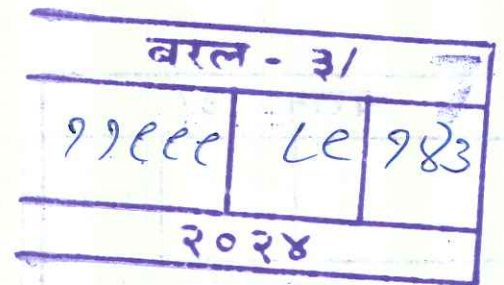 बरल - ३/
११९९९ ८९ १४३
२०२४